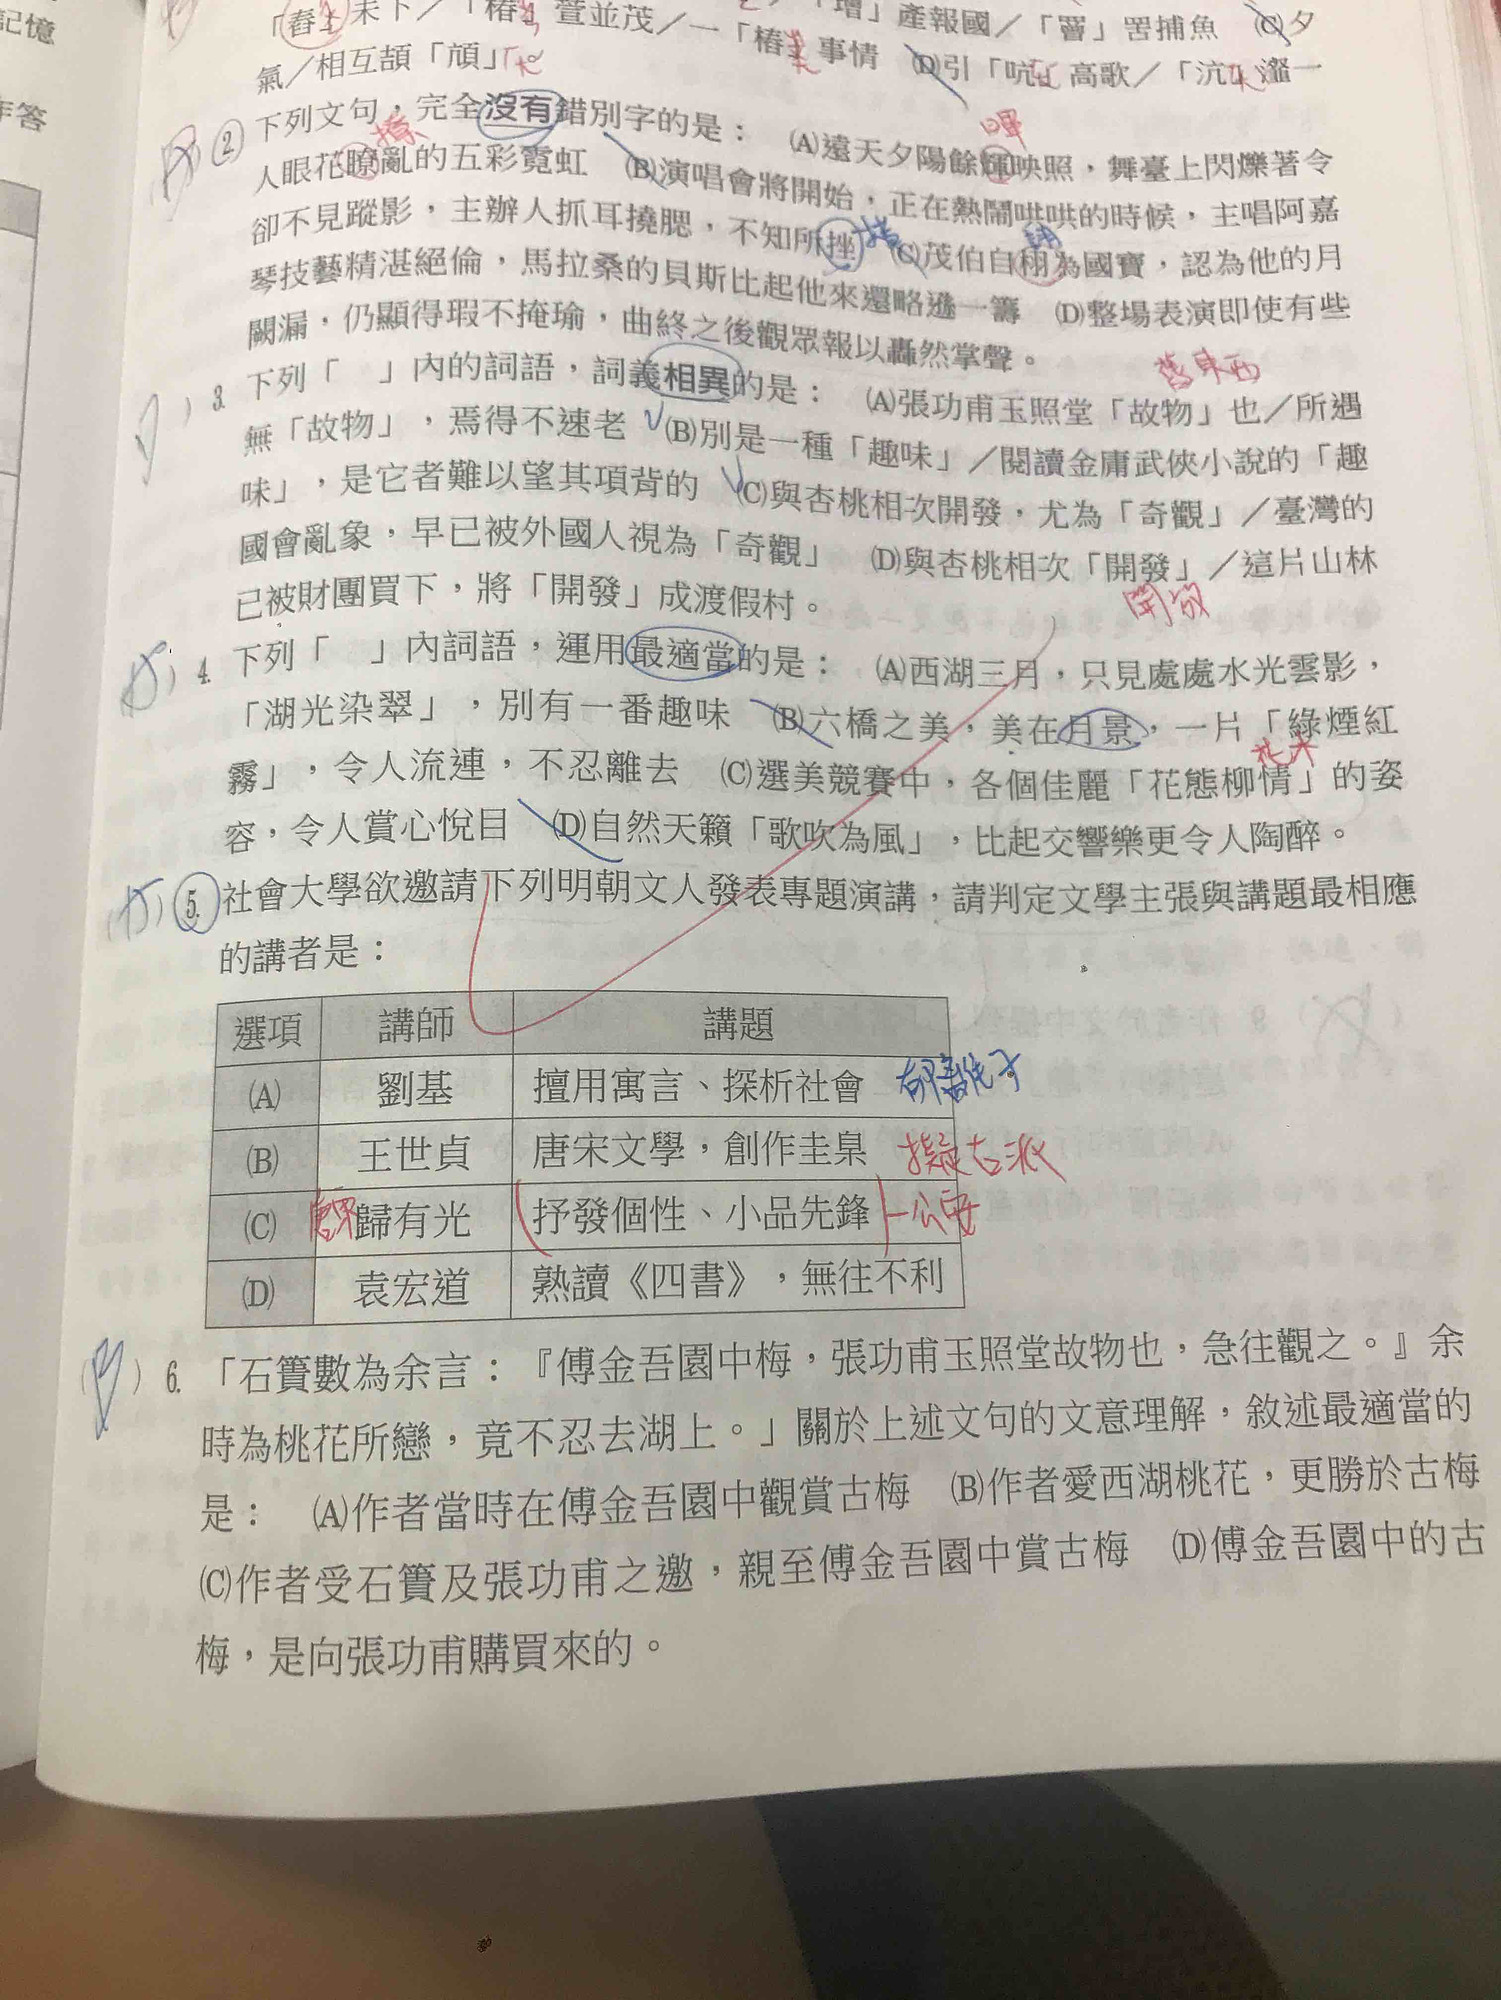 記憶
作答
「舂」未下／「椿」萱並茂／一「樁」事情
「增」產報國／「罾」罟捕魚 (C)夕
氣／相互頡「頏」 (D)引「吭」高歌／「沆」瀣一
② 下列文句，完全沒有錯別字的是： (A)遠天夕陽餘輝映照，舞臺上閃爍著令
人眼花瞭亂的五彩霓虹 (B)演唱會將開始，正在熱鬧哄哄的時候，主唱阿嘉
卻不見蹤影，主辦人抓耳撓腮，不知所挫 (C)茂伯自栩為國寶，認為他的月
琴技藝精湛絕倫，馬拉桑的貝斯比起他來還略遜一籌 (D)整場表演即使有些
闕漏，仍顯得瑕不掩瑜，曲終之後觀眾報以轟然掌聲。
暉
撩
措
詡
舊東西
3. 下列「 」內的詞語，詞義相異的是： (A)張功甫玉照堂「故物」也／所遇
無「故物」，焉得不速老 (B)別是一種「趣味」／閱讀金庸武俠小說的「趣
味」，是它者難以望其項背的 (C)與杏桃相次開發，尤為「奇觀」／臺灣的
國會亂象，早已被外國人視為「奇觀」 (D)與杏桃相次「開發」／這片山林
已被財團買下，將「開發」成渡假村。
開放
4. 下列「 」內詞語，運用最適當的是： (A)西湖三月，只見處處水光雲影，
「湖光染翠」，別有一番趣味 (B)六橋之美，美在月景，一片「綠煙紅
霧」，令人流連，不忍離去 (C)選美競賽中，各個佳麗「花態柳情」的姿
容，令人賞心悅目 (D)自然天籟「歌吹為風」，比起交響樂更令人陶醉。
花木
5. 社會大學欲邀請下列明朝文人發表專題演講，請判定文學主張與講題最相應
的講者是：
選項 講師 講題
(A) 劉基 擅用寓言、探析社會
(B) 王世貞 唐宋文學，創作圭臬 擬古派
(C) 歸有光 抒發個性、小品先鋒 公安
(D) 袁宏道 熟讀《四書》，無往不利
6. 「石簣數為余言：『傅金吾園中梅，張功甫玉照堂故物也，急往觀之。』余
時為桃花所戀，竟不忍去湖上。」關於上述文句的文意理解，敘述最適當的
是： (A)作者當時在傅金吾園中觀賞古梅 (B)作者愛西湖桃花，更勝於古梅
(C)作者受石簣及張功甫之邀，親至傅金吾園中賞古梅 (D)傅金吾園中的古
梅，是向張功甫購買來的。